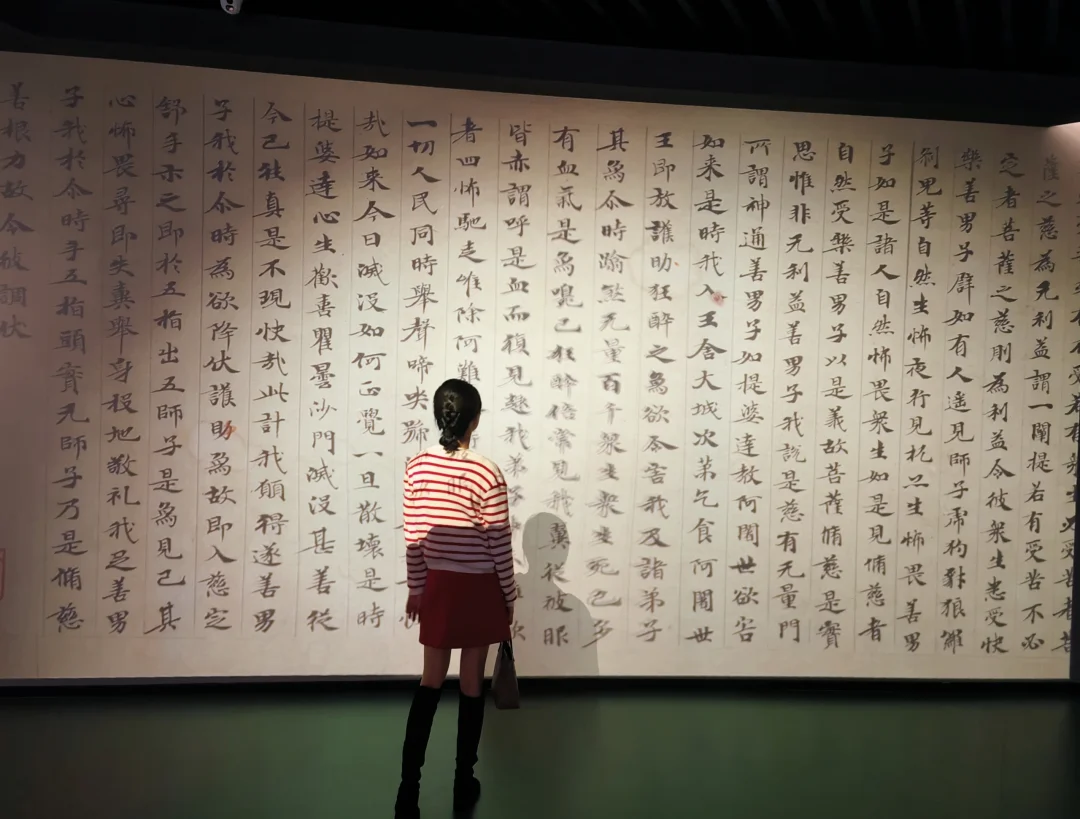 若有衆生必受苦者菩
薩之慈為无利益謂一闡提若有受苦不必
定者菩薩之慈則為利益令彼衆生悉受快
樂善男子辟如有人遥見師子虎豹豺狼羅
刹鬼等自然生怖夜行見杌亦生怖畏善男
子如是諸人自然怖畏衆生如是見脩慈者
自然受樂善男子以是義故菩薩脩慈是實
思惟非无利益善男子我說是慈有无量門
所謂神通善男子如提婆達教阿闍世欲害
如来是時我入王舍大城次第乞食阿闍世
王即放護助狂醉之象欲令害我及諸弟子
其象尒時踰煞无量百千衆生衆生死已多
有血氣是象嗅已狂醉倍常見我翼從被服
皆亦謂呼是血而復見趣我弟子
者四怖馳走唯除阿難
一切人民同時舉聲啼哭號
哉如来今日滅没如何正覺一旦散壞是時
提婆達心生歡喜瞿曇沙門滅没甚善從
今已往真是不現快哉此計我願得遂善男
子我於尒時為欲降伏護助象故即入慈定
舒手示之即於五指出五師子是象見已其
心怖畏尋即失糞舉身投地敬礼我足善男
子我於尒時手五指頭實无師子乃是脩慈
善根力故令彼調伏